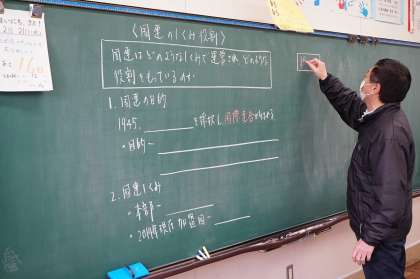 〈国連のしくみ役割〉
国連はどのようなしくみで運営され、どのような
役割をもっているのか
1. 国連の目的
1945, を採択し 国際連合が
・目的―
2. 国連しくみ
・本部―
・2019年現在 加盟国―